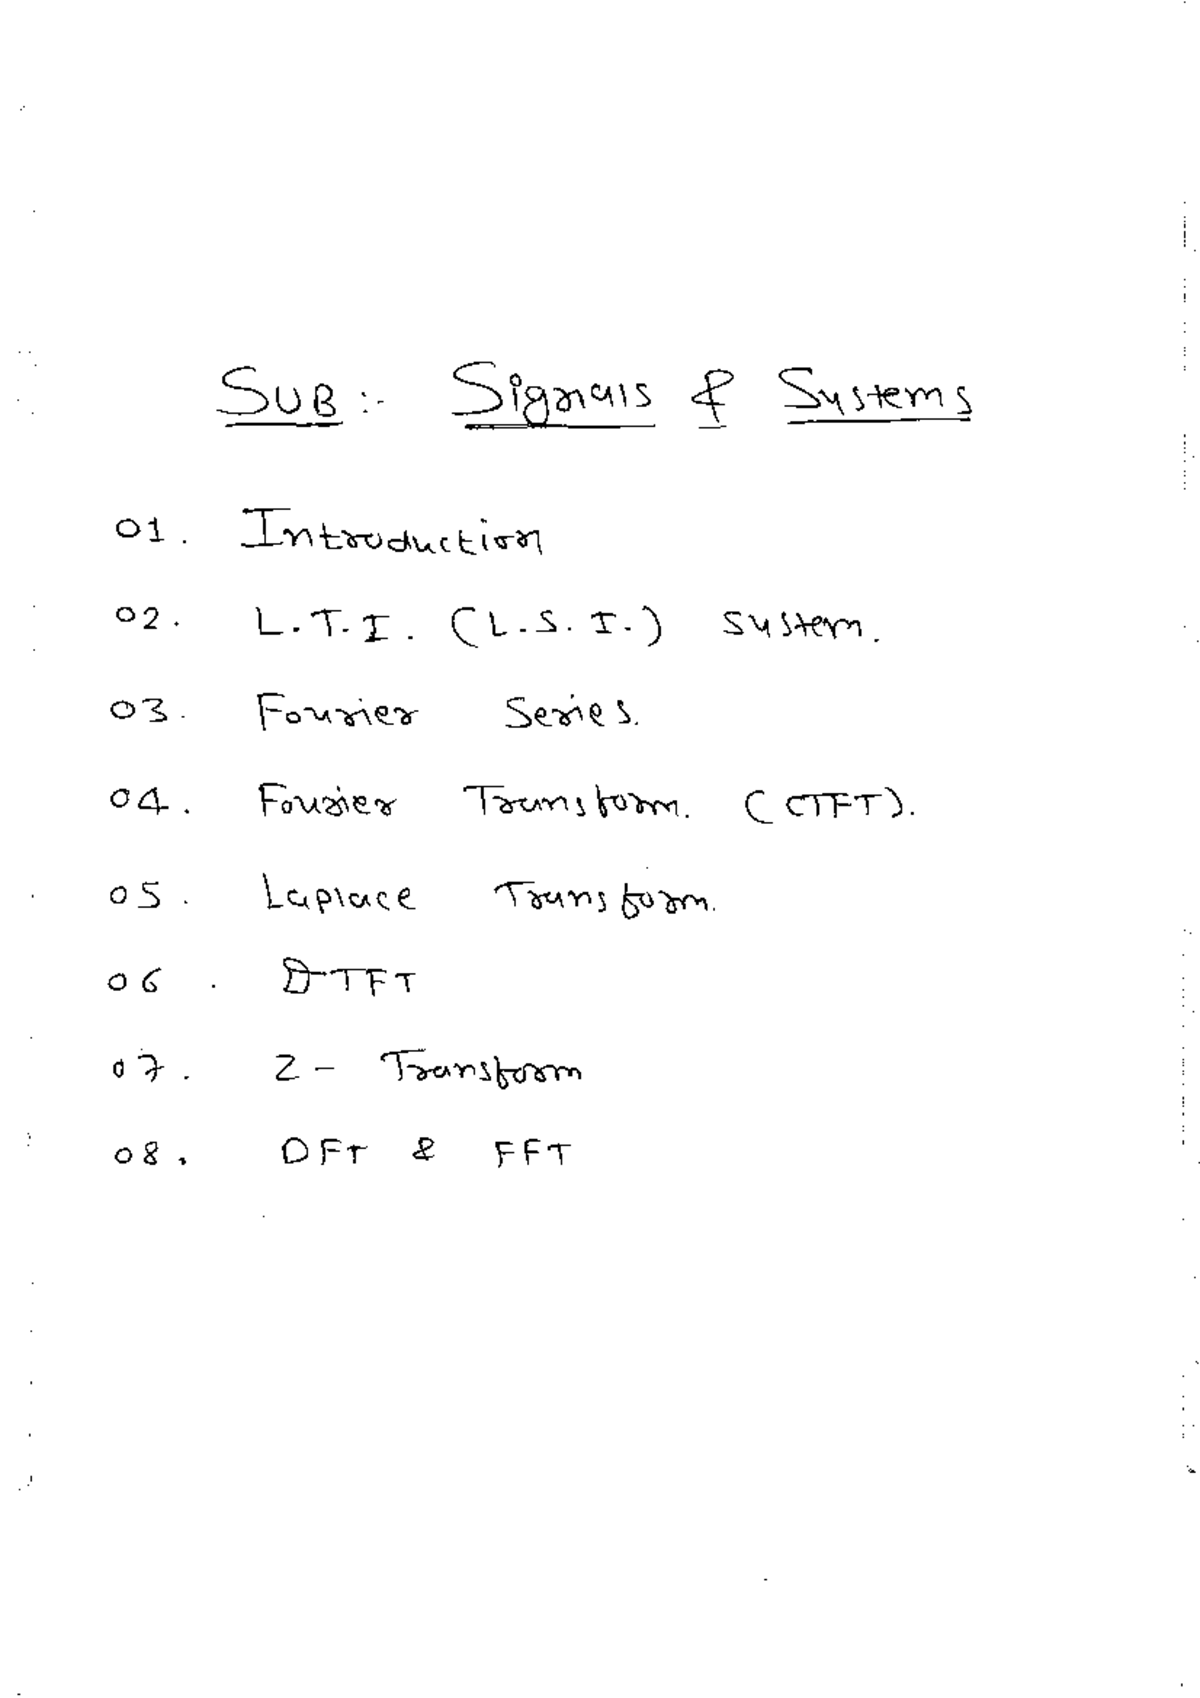 SUB :- Signals & Systems
01. Introduction
02. L.T.I. (L.S.I.) system.
03. Fourier Series.
04. Fourier Transform. (CTFT).
05. Laplace Transform.
06. DTFT
07. Z- Transform
08. DFT & FFT